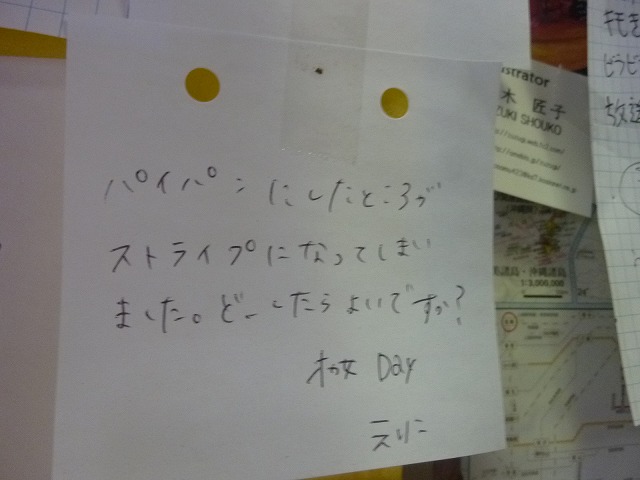 パイパンにしたところが
ストライプになってしまい
ました。どーしたらよいですか?
Day
えりこ
strator
木 匠子
ZUKI SHOUKO
諸島・沖縄諸島
1:3,000,000